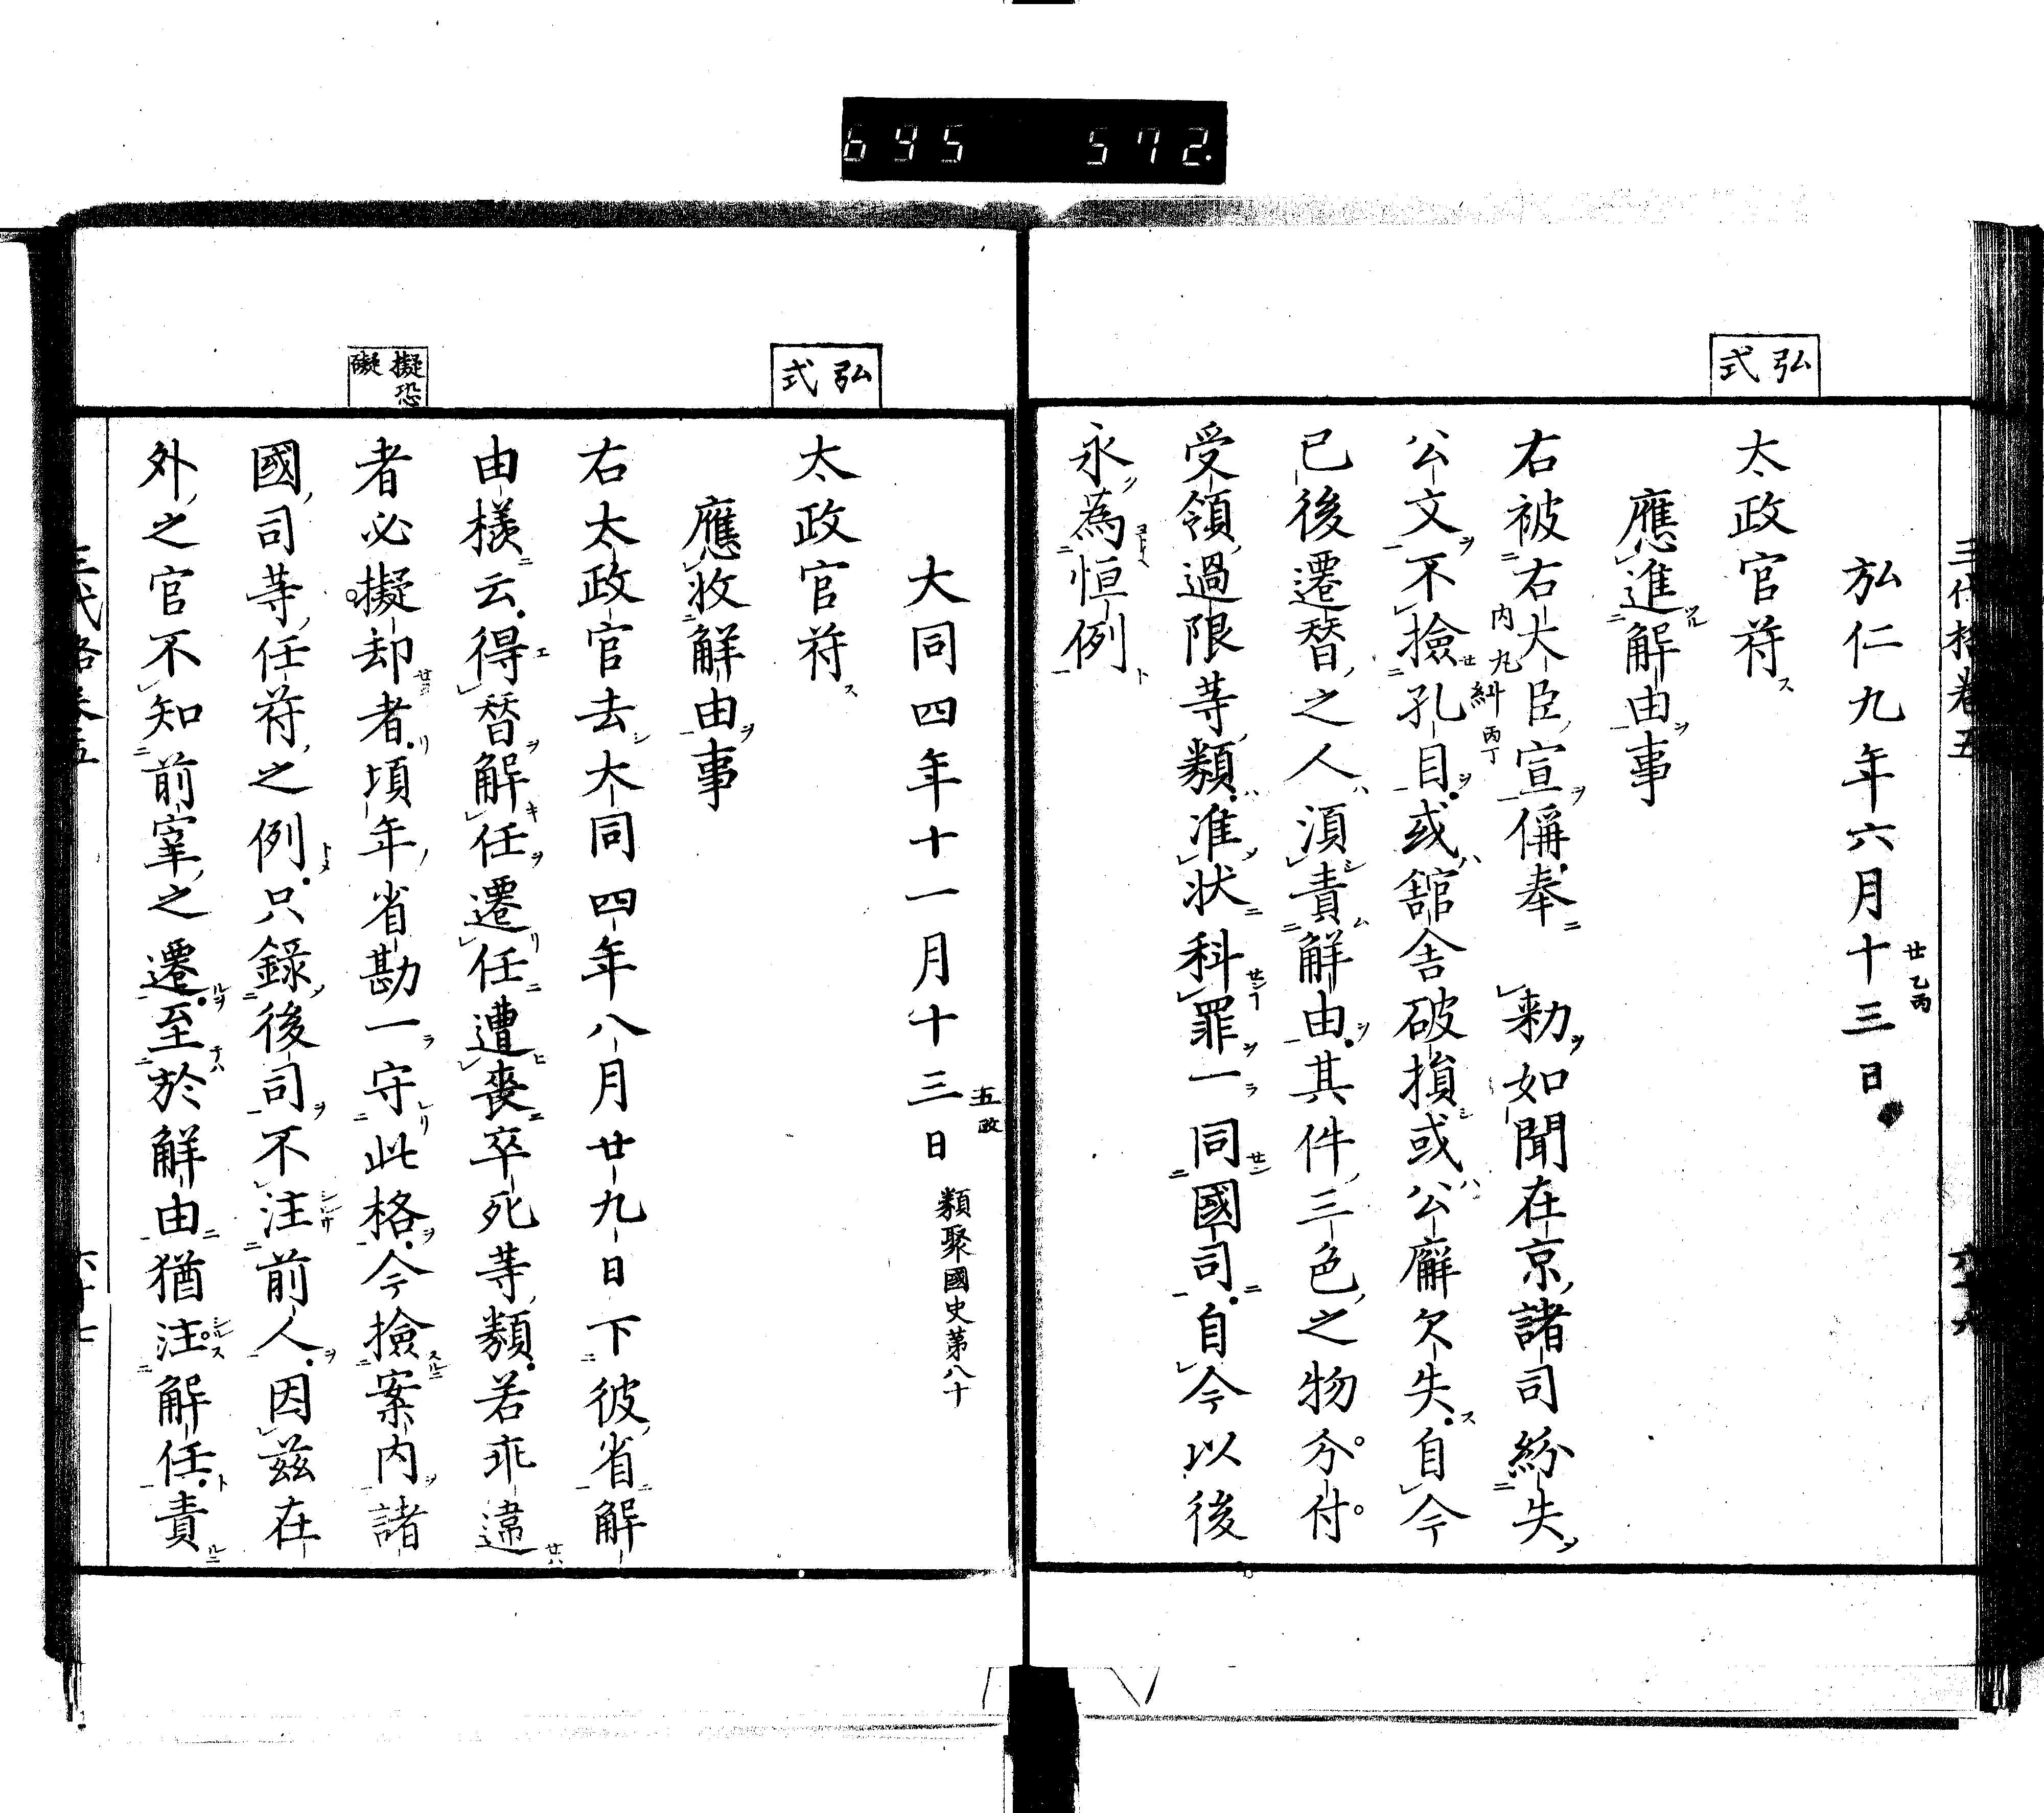 695 572.
三代格卷五
弘仁九年六月十三日
廿乙丙
弘式
太政官符ス
應進解由事
右被右大臣宣偁奉　勅如聞在京諸司紛失
内九
糾丙丁
公文不撿孔目或舘舍破損或公廨欠失自今
已後遷替之人湏責解由其件三色之物分付
受領過限䓁類准状科罪一同國司自今以後
永為恒例
大同四年十一月十三日
五政
類聚國史第八十
弘式
太政官符ス
應收解由事
右太政官去大同四年八月廿九日下彼省解
由樣云得替解任遷任遭喪卒死䓁類若乖違
擬恐礙
者必擬却者頃年省勘一守此格今撿案内諸
國司䓁任符之例只錄後司不注前人因茲在
外之官不知前宰之遷至於解由猶注解任責